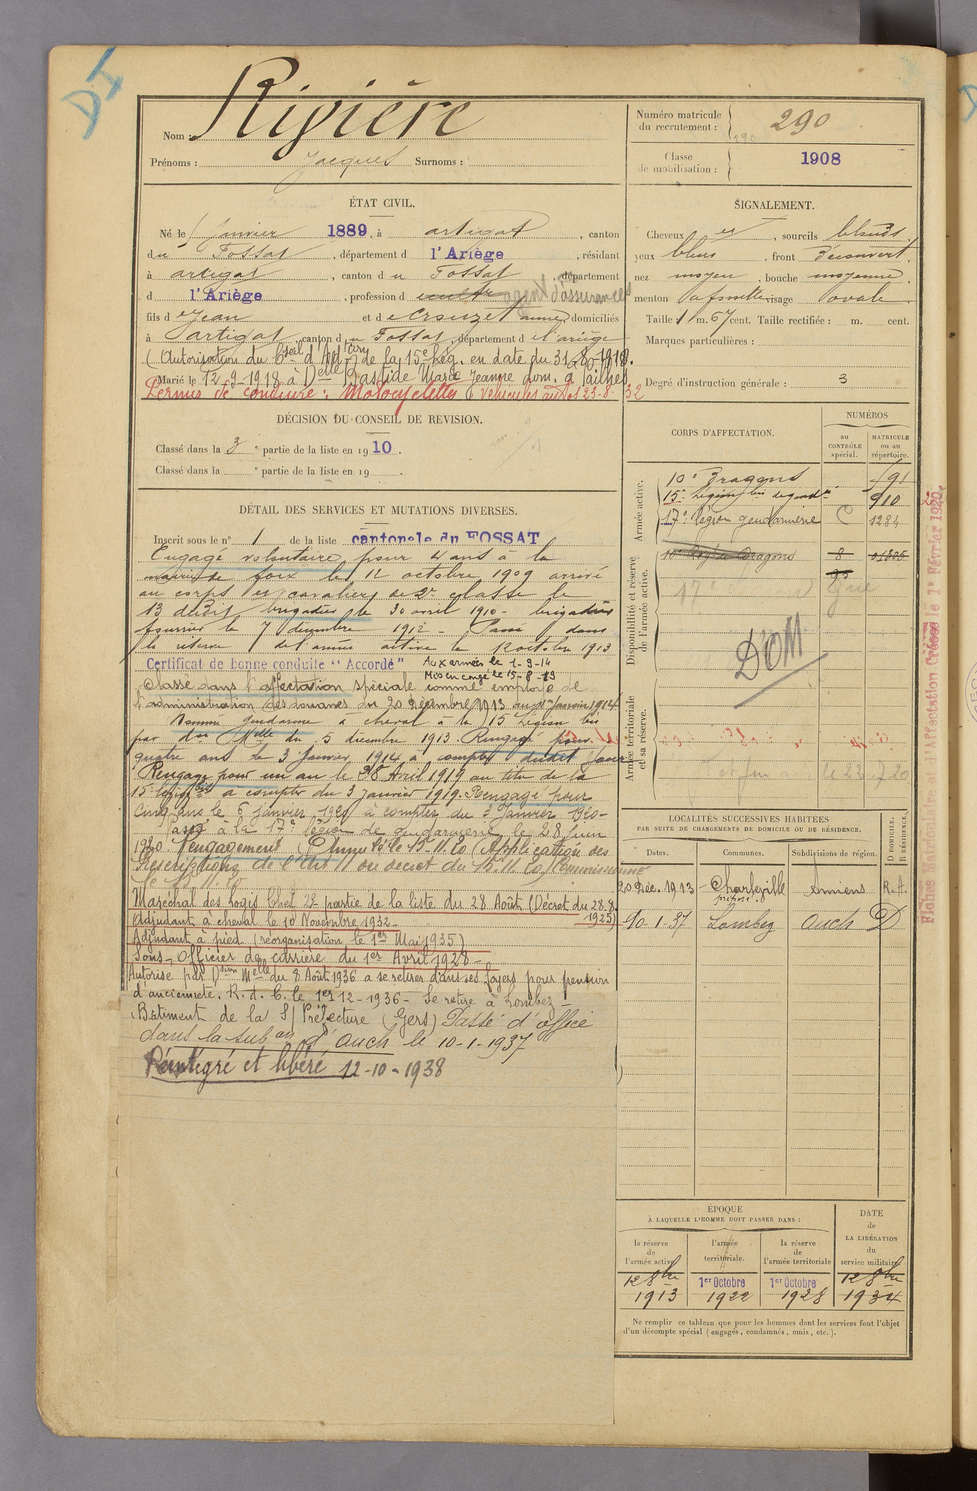 DI
Nom : Rivière
Prénoms : Jacques Surnoms :
Numéro matricule du recrutement : 290
290
Classe de mobilisation : 1908
ÉTAT CIVIL.
Né le 1 janvier 1889, à Artigat, canton
du Fossat, département d l'Ariège, résidant
à Artigat, canton du Fossat, département
d l'Ariège, profession d agent d'assurances
fils d Jean et d Crouzet Anne, domiciliés
à Artigat, canton du Fossat, département d l'Ariège
(Autorisation du de la 15e Rég. en date du 31-8-1918.
Marié le 12-9-1918 à Delle Bastide Marie Jeanne dom. à Pailhès
Permis de conduire : Motocyclettes & véhicules autos 23-8-32
SIGNALEMENT.
Cheveux et, sourcils blonds,
yeux bleus, front découvert,
nez moyen, bouche moyenne,
menton à fossette visage ovale
Taille 1 m. 67 cent. Taille rectifiée : m. cent.
Marques particulières :
Degré d'instruction générale : 3
DÉCISION DU CONSEIL DE REVISION.
Classé dans la 3e partie de la liste en 1910.
Classé dans la e partie de la liste en 19
DÉTAIL DES SERVICES ET MUTATIONS DIVERSES.
Inscrit sous le n° 1 de la liste cantonale du FOSSAT
Engagé volontaire pour 4 ans à la
mairie de Foix le 12 octobre 1909 arrivé
au corps et cavalier de 2e classe le
13 dudit brigadier le 30 avril 1910 - brigadier
fourrier le 7 décembre 1912 - Passé dans
la réserve de l'armée active le 12 octobre 1913
Certificat de bonne conduite "Accordé" Aux armées le 1-9-14
Mis en congé le 15-8-19
Classé dans l'affectation spéciale comme employé de
l'administration des douanes du 20 décembre 1913 au 1er Janvier 1914
Nommé gendarme à cheval à la 15 Légion bis
par don Melle du 5 décembre 1913. Rengagé pour
quatre ans le 3 Janvier 1914 à compter dudit jour
Rengagé pour un an le 30 Avril 1919 au titre de la
15 légion bis à compter du 3 janvier 1919. Rengagé pour
cinq ans le 6 janvier 1920 à compter du 3 Janvier 1920 -
Passé à la 17e légion de gendarmerie le 28 juin
1920. Rengagement (Application des
Prescriptions de l'Art 11 du décret du Commissionné
Maréchal des Logis Chef 2e partie de la liste du 28 Août (Décret du 28.8.1925)
Adjudant à cheval le 10 Novembre 1932
Adjudant à pied (réorganisation le 1er Mai 1935)
Sous-Officier de carrière du 1er Avril 1928 -
Autorisé par Dsion Melle du 8 Août 1936 à se retirer dans ses foyers pour pension
d'ancienneté. R. d. C. le 1er 12-1936 - Se retire à Lombez -
Bâtiment de la S/ Préfecture (Gers) Passé d'office
dans la subon d'Auch le 10-1-1937
Réintegré et libéré 12-10-1938
CORPS D'AFFECTATION.
NUMÉROS
au CONTRÔLE spécial.
MATRICULE ou au répertoire.
Armée active.
10e Dragons 191
15e Légion bis de gendrie 910
17e légion gendarmerie C 1284
Disponibilité et réserve de l'armée active.
10e Rég de Dragons 8
DOM
Armée territoriale et sa réserve.
LOCALITÉS SUCCESSIVES HABITÉES
PAR SUITE DE CHANGEMENTS DE DOMICILE OU DE RÉSIDENCE.
Dates. Communes. Subdivisions de région. D DOMICILE. R RÉSIDENCE.
20 Déc. 1913 - Charleville Amiens R.A.
préposé.
10-1-37 Lombez Auch D
ÉPOQUE
À LAQUELLE L'HOMME DOIT PASSER DANS :
la réserve de l'armée active
l'armée territoriale.
la réserve de l'armée territoriale
DATE de LA LIBÉRATION du service militaire
12 8bre 1913
1er Octobre 1922
1er Octobre 1928
12 8bre 1934
Ne remplir ce tableau que pour les hommes dont les services font l'objet
d'un décompte spécial (engagés, condamnés, omis, etc.).
Fiches Matriculaire et d'Affectation Créées le 1er Février 1920.